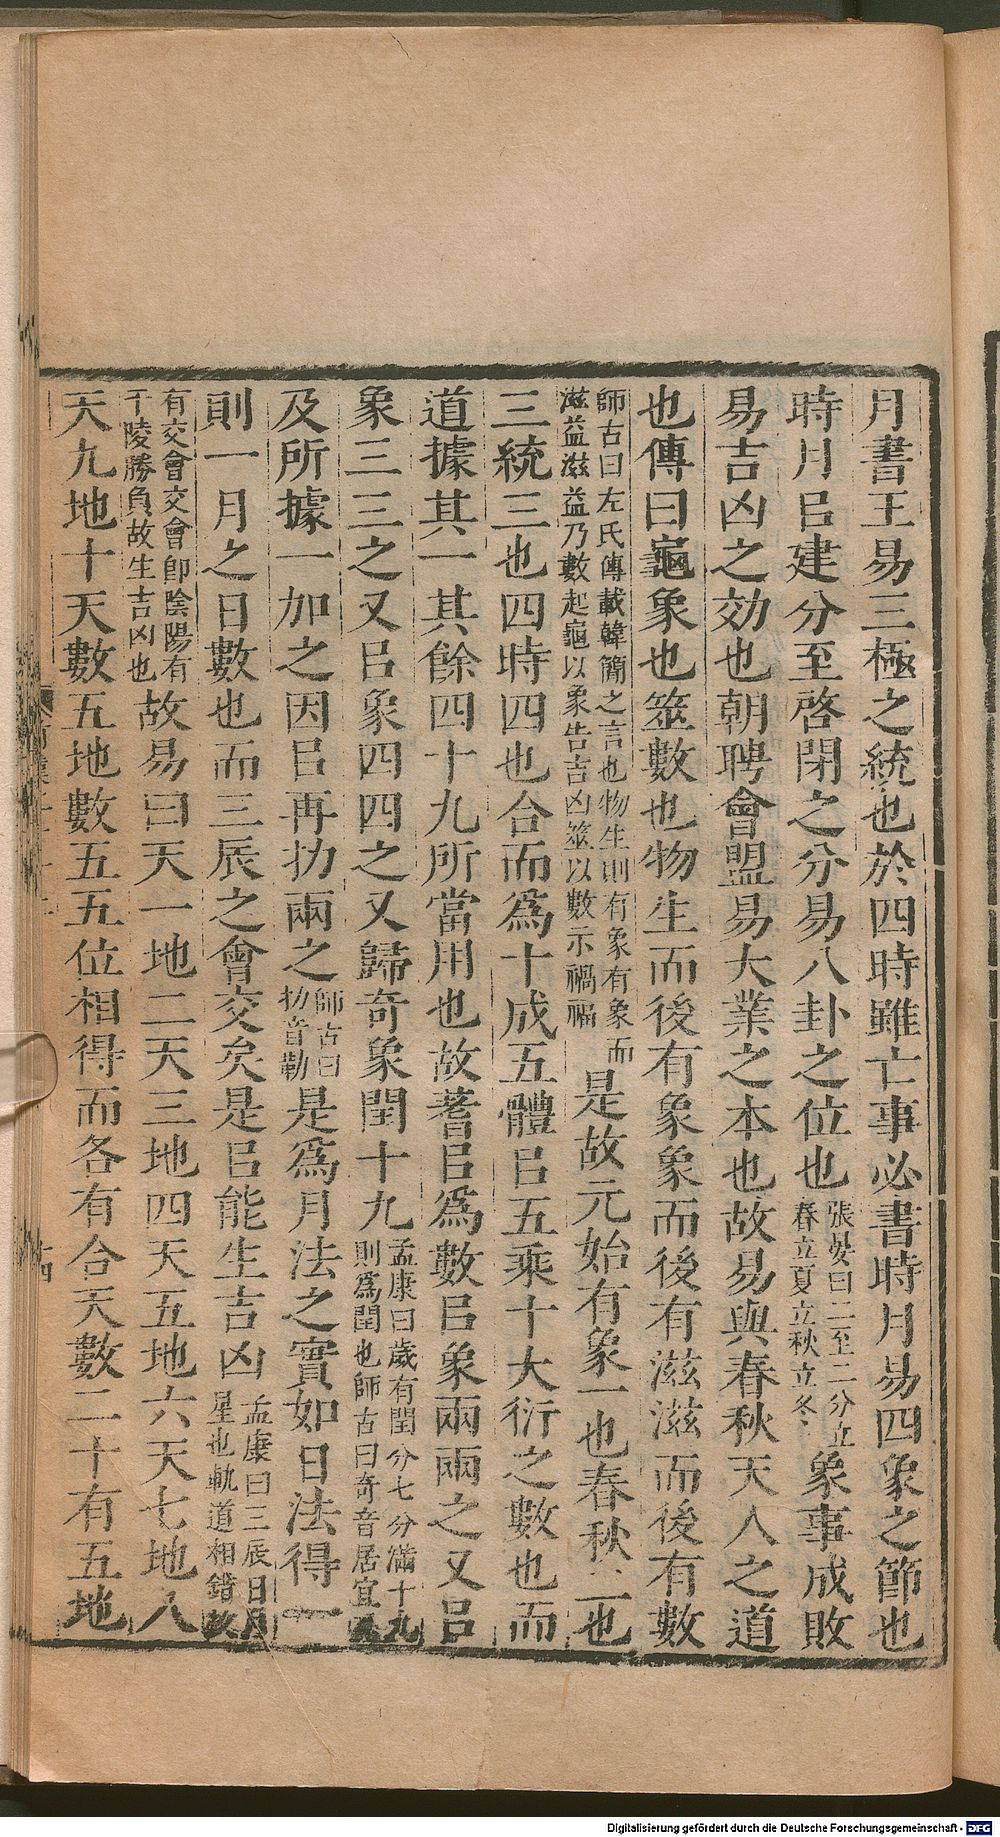 月書王易三極之統也於四時雖亡事必書時月易四象之節也
時月㠯建分至啓閉之分易八卦之位也張晏曰二至二分立春立夏立秋立冬象事成敗
易吉凶之効也朝聘會盟易大業之本也故易與春秋天人之道
也傳曰龜象也筮數也物生而後有象象而後有滋滋而後有數
師古曰左氏傳載韓簡之言也物生則有象有象而滋益滋益乃數起龜以象告吉凶筮以數示禍福是故元始有象一也春秋二也
三統三也四時四也合而爲十成五體㠯五乘十大衍之數也而
道據其一其餘四十九所當用也故蓍㠯爲數㠯象兩兩之又㠯
象三三之又㠯象四四之又歸奇象閏十九孟康曰歲有閏分七分滿十九則爲閏也師古曰奇音居宜
及所據一加之因㠯再扐兩之師古曰扐音勒是爲月法之實如日法得一
則一月之日數也而三辰之會交矣是㠯能生吉凶孟康曰三辰日月星也軌道相錯故
有交會交會卽陰陽有干陵勝負故生吉凶也故易曰天一地二天三地四天五地六天七地八
天九地十天數五地數五五位相得而各有合天數二十有五地
十四
Digitalisierung gefördert durch die Deutsche Forschungsgemeinschaft - DFG